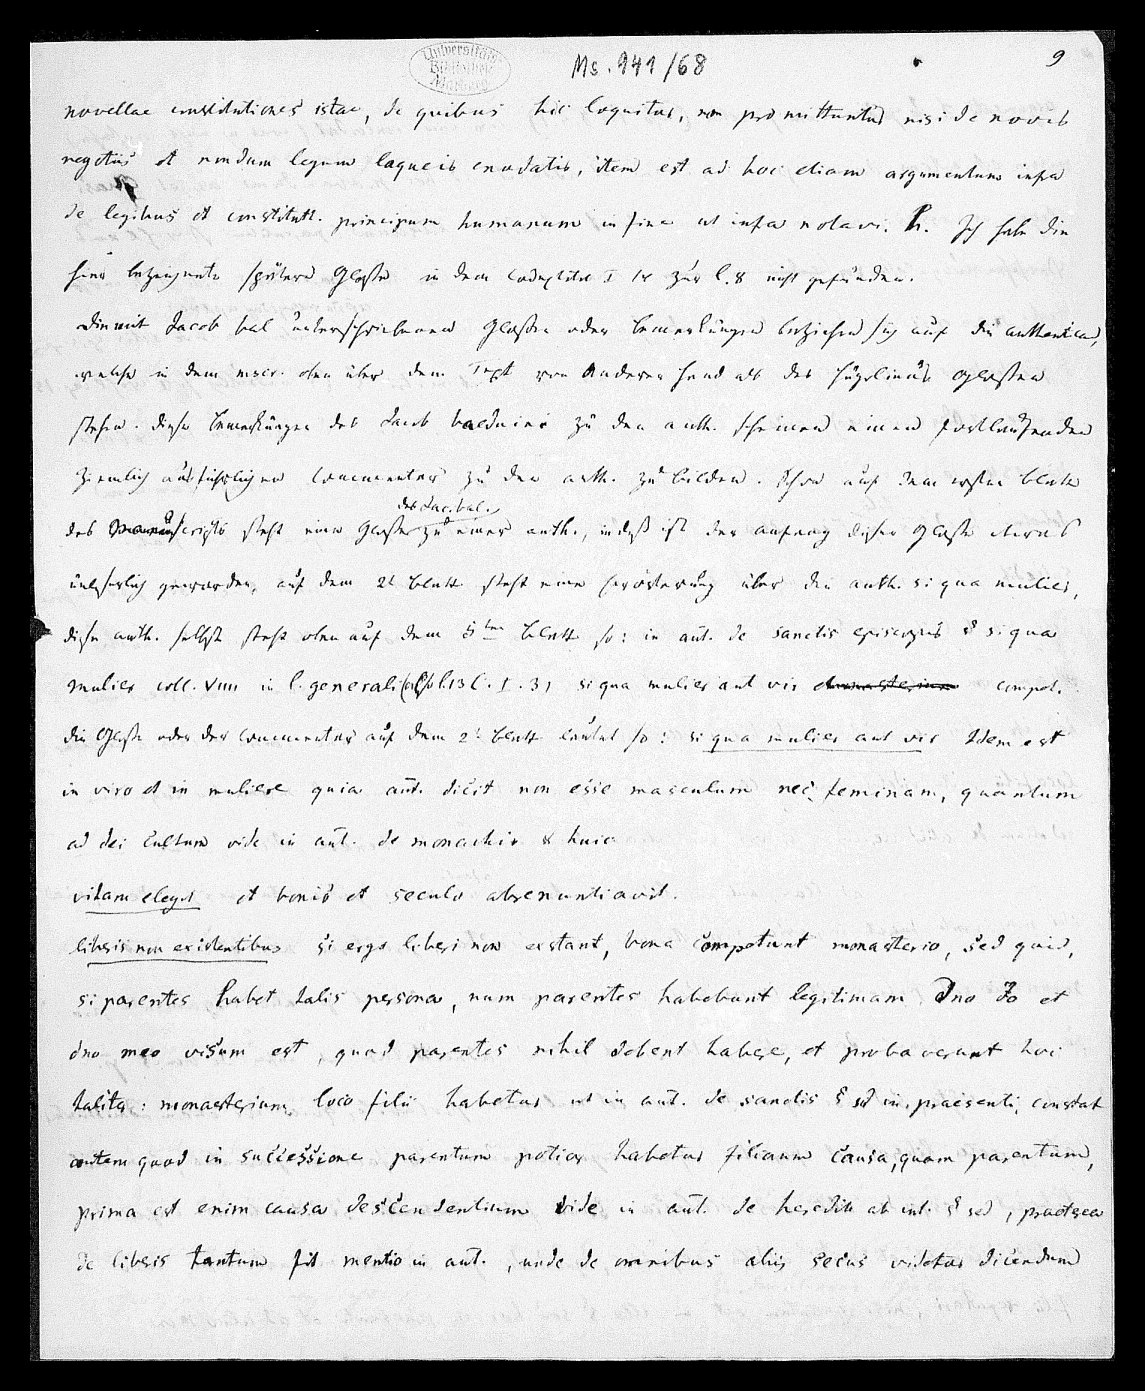 Universitäts Bibliothek Marburg
Ms. 941/68
9
novellae constitutiones istae, de quibus hic loquitur, non promittuntur nisi de novis
negotiis et nondum legum laqueis enodatis, item est ad hoc etiam argumentum infra
de legibus et constitutt. principum humanum in fine ut infra notavi. h. Ich habe die
hier bezeugnete spätere Glosse in dem Codextitel I 14 zur l. 8 nicht gefunden.
Die mit Jacob bal unterschriebenen Glossen oder Bemerkungen beziehen sich auf die authenticas,
welche in dem mscr. oben über dem Text von anderer Hand als des Hugolinus Glossen
stehen. diese Bemerkungen des Jacob balduini zu den auth. scheinen einen fortlaufenden
ziemlich ausführlichen Commentar zu den auth. zu bilden. Schon auf dem ersten Blatte
des Jac. bal.
des Manuscripts steht eine Glosse zu einer auth., indeß ist der anfang dieser Glosse etwas
unleserlich geworden, auf dem 2t Blatt steht eine Erörterung über die auth. si qua mulier,
diese auth. selbst steht oben auf dem ten Blatt so: in aut. de sanctis episcopis § si qua
mulier coll. VIIII in l. generali 13 C. I. 3) si qua mulier aut vir compet.
die Glosse oder der Commentar auf dem 2t Blatt lautet so: si qua mulier aut vir Idem est
in viro et in muliere quia aut. dicit non esse masculum nec feminam, quantum
ad dei cultum vide in aut. de monachis § huic
vitam elegit et bonis et seculo abrenuntiavit.
liberis non existentibus Si ergo liberi non extant, bona competunt monasterio, sed quid,
si parentes habet talis persona, num parentes habebunt legitimam Dno Jo et
dno meo visum est, quod parentes nihil debent habere, et probaverunt hoc
taliter: monasterium loco filii habetur ut in aut. de sanctis § sed in praesenti, constat
autem quod in successione parentum potior habetur filiorum causa, quam parentum,
prima est enim causa descendentium vide in aut. de heredit. ab int. § sed, praeterea
de liberis tantum fit mentio in aut., unde de omnibus aliis secus videtur dicendum